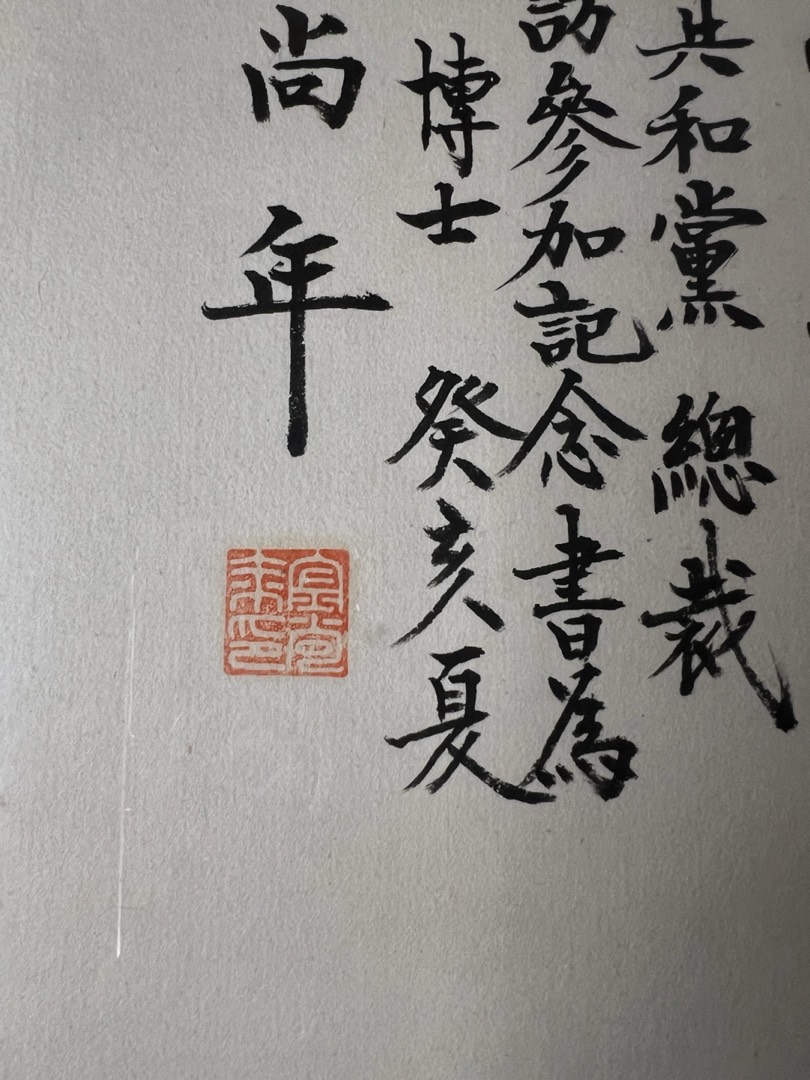 共和黨 總裁
訪參加記念書為
博士 癸亥夏
尚年